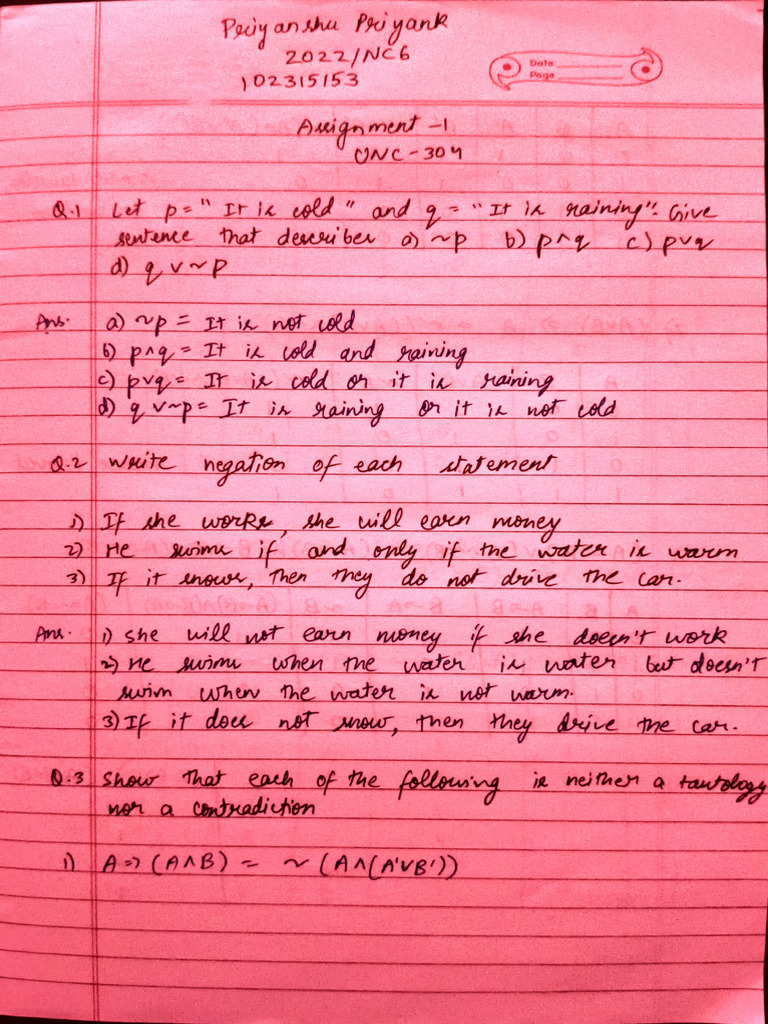 Priyanshu Priyank
2022/NC6
102315153
Date
Page
Assignment -1
UNC-304
Q.1 Let p = "It is cold" and q = "It is raining". Give
sentence that describes a) ~p b) p∧q c) p∨q
d) q ∨ ~p
Ans. a) ~p = It is not cold
b) p∧q = It is cold and raining
c) p∨q = It is cold or it is raining
d) q ∨~p = It is raining or it is not cold
Q.2 Write negation of each statement
1) If she works, she will earn money
2) He swims if and only if the water is warm
3) If it snows, then they do not drive the car.
Ans. 1) She will not earn money if she doesn't work
2) He swims when the water is water but doesn't
swim when the water is not warm.
3) If it does not snow, then they drive the car.
Q.3 Show that each of the following is neither a tautology
nor a contradiction
1) A⇒(A∧B) = ~(A∧(A'∨B'))